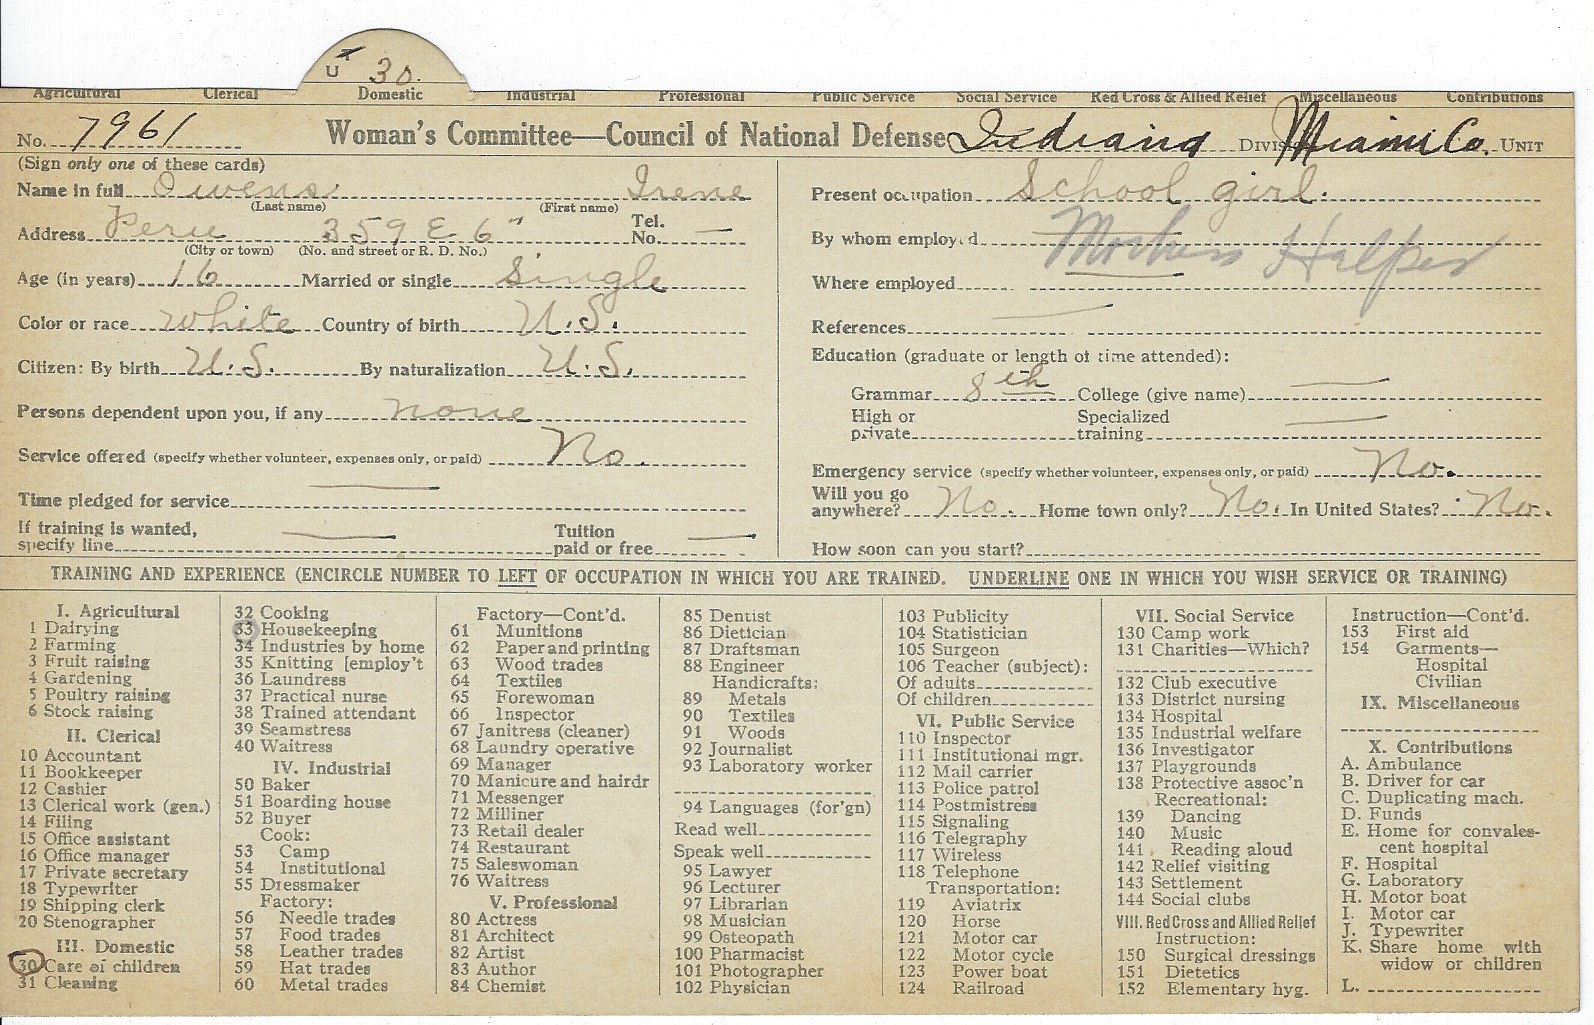 U 30.
Agricultural Clerical Domestic Industrial Professional Public Service Social Service Red Cross & Allied Relief Miscellaneous Contributions
No. 7961 Woman's Committee—Council of National Defense Indiana Division Miami Co. Unit
(Sign only one of these cards)
Name in full Owens Irene
(Last name) (First name)
Address Peru 359 E 6" Tel. No. —
(City or town) (No. and street or R. D. No.)
Age (in years) 16 Married or single Single
Color or race White Country of birth U.S.
Citizen: By birth U.S. By naturalization U.S.
Persons dependent upon you, if any none
Service offered (specify whether volunteer, expenses only, or paid) No.
Time pledged for service —
If training is wanted,
specify line — Tuition paid or free —
Present occupation School girl.
By whom employed Mothers Helper
Where employed
References —
Education (graduate or length of time attended):
Grammar 8th College (give name) —
High or private Specialized training —
Emergency service (specify whether volunteer, expenses only, or paid) No.
Will you go anywhere? No. Home town only? No. In United States? No.
How soon can you start?
TRAINING AND EXPERIENCE (ENCIRCLE NUMBER TO LEFT OF OCCUPATION IN WHICH YOU ARE TRAINED. UNDERLINE ONE IN WHICH YOU WISH SERVICE OR TRAINING)
I. Agricultural
1 Dairying
2 Farming
3 Fruit raising
4 Gardening
5 Poultry raising
6 Stock raising
II. Clerical
10 Accountant
11 Bookkeeper
12 Cashier
13 Clerical work (gen.)
14 Filing
15 Office assistant
16 Office manager
17 Private secretary
18 Typewriter
19 Shipping clerk
20 Stenographer
III. Domestic
30 Care of children
31 Cleaning
32 Cooking
33 Housekeeping
34 Industries by home
35 Knitting [employ't
36 Laundress
37 Practical nurse
38 Trained attendant
39 Seamstress
40 Waitress
IV. Industrial
50 Baker
51 Boarding house
52 Buyer
Cook:
53 Camp
54 Institutional
55 Dressmaker
Factory:
56 Needle trades
57 Food trades
58 Leather trades
59 Hat trades
60 Metal trades
Factory—Cont'd.
61 Munitions
62 Paper and printing
63 Wood trades
64 Textiles
65 Forewoman
66 Inspector
67 Janitress (cleaner)
68 Laundry operative
69 Manager
70 Manicure and hairdr
71 Messenger
72 Milliner
73 Retail dealer
74 Restaurant
75 Saleswoman
76 Waitress
V. Professional
80 Actress
81 Architect
82 Artist
83 Author
84 Chemist
85 Dentist
86 Dietician
87 Draftsman
88 Engineer
Handicrafts:
89 Metals
90 Textiles
91 Woods
92 Journalist
93 Laboratory worker
94 Languages (for'gn)
Read well
Speak well
95 Lawyer
96 Lecturer
97 Librarian
98 Musician
99 Osteopath
100 Pharmacist
101 Photographer
102 Physician
103 Publicity
104 Statistician
105 Surgeon
106 Teacher (subject):
Of adults
Of children
VI. Public Service
110 Inspector
111 Institutional mgr.
112 Mail carrier
113 Police patrol
114 Postmistress
115 Signaling
116 Telegraphy
117 Wireless
118 Telephone
Transportation:
119 Aviatrix
120 Horse
121 Motor car
122 Motor cycle
123 Power boat
124 Railroad
VII. Social Service
130 Camp work
131 Charities—Which?
132 Club executive
133 District nursing
134 Hospital
135 Industrial welfare
136 Investigator
137 Playgrounds
138 Protective assoc'n
Recreational:
139 Dancing
140 Music
141 Reading aloud
142 Relief visiting
143 Settlement
144 Social clubs
VIII. Red Cross and Allied Relief
Instruction:
150 Surgical dressings
151 Dietetics
152 Elementary hyg.
Instruction—Cont'd.
153 First aid
154 Garments—
Hospital
Civilian
IX. Miscellaneous
X. Contributions
A. Ambulance
B. Driver for car
C. Duplicating mach.
D. Funds
E. Home for convales-
cent hospital
F. Hospital
G. Laboratory
H. Motor boat
I. Motor car
J. Typewriter
K. Share home with
widow or children
L.